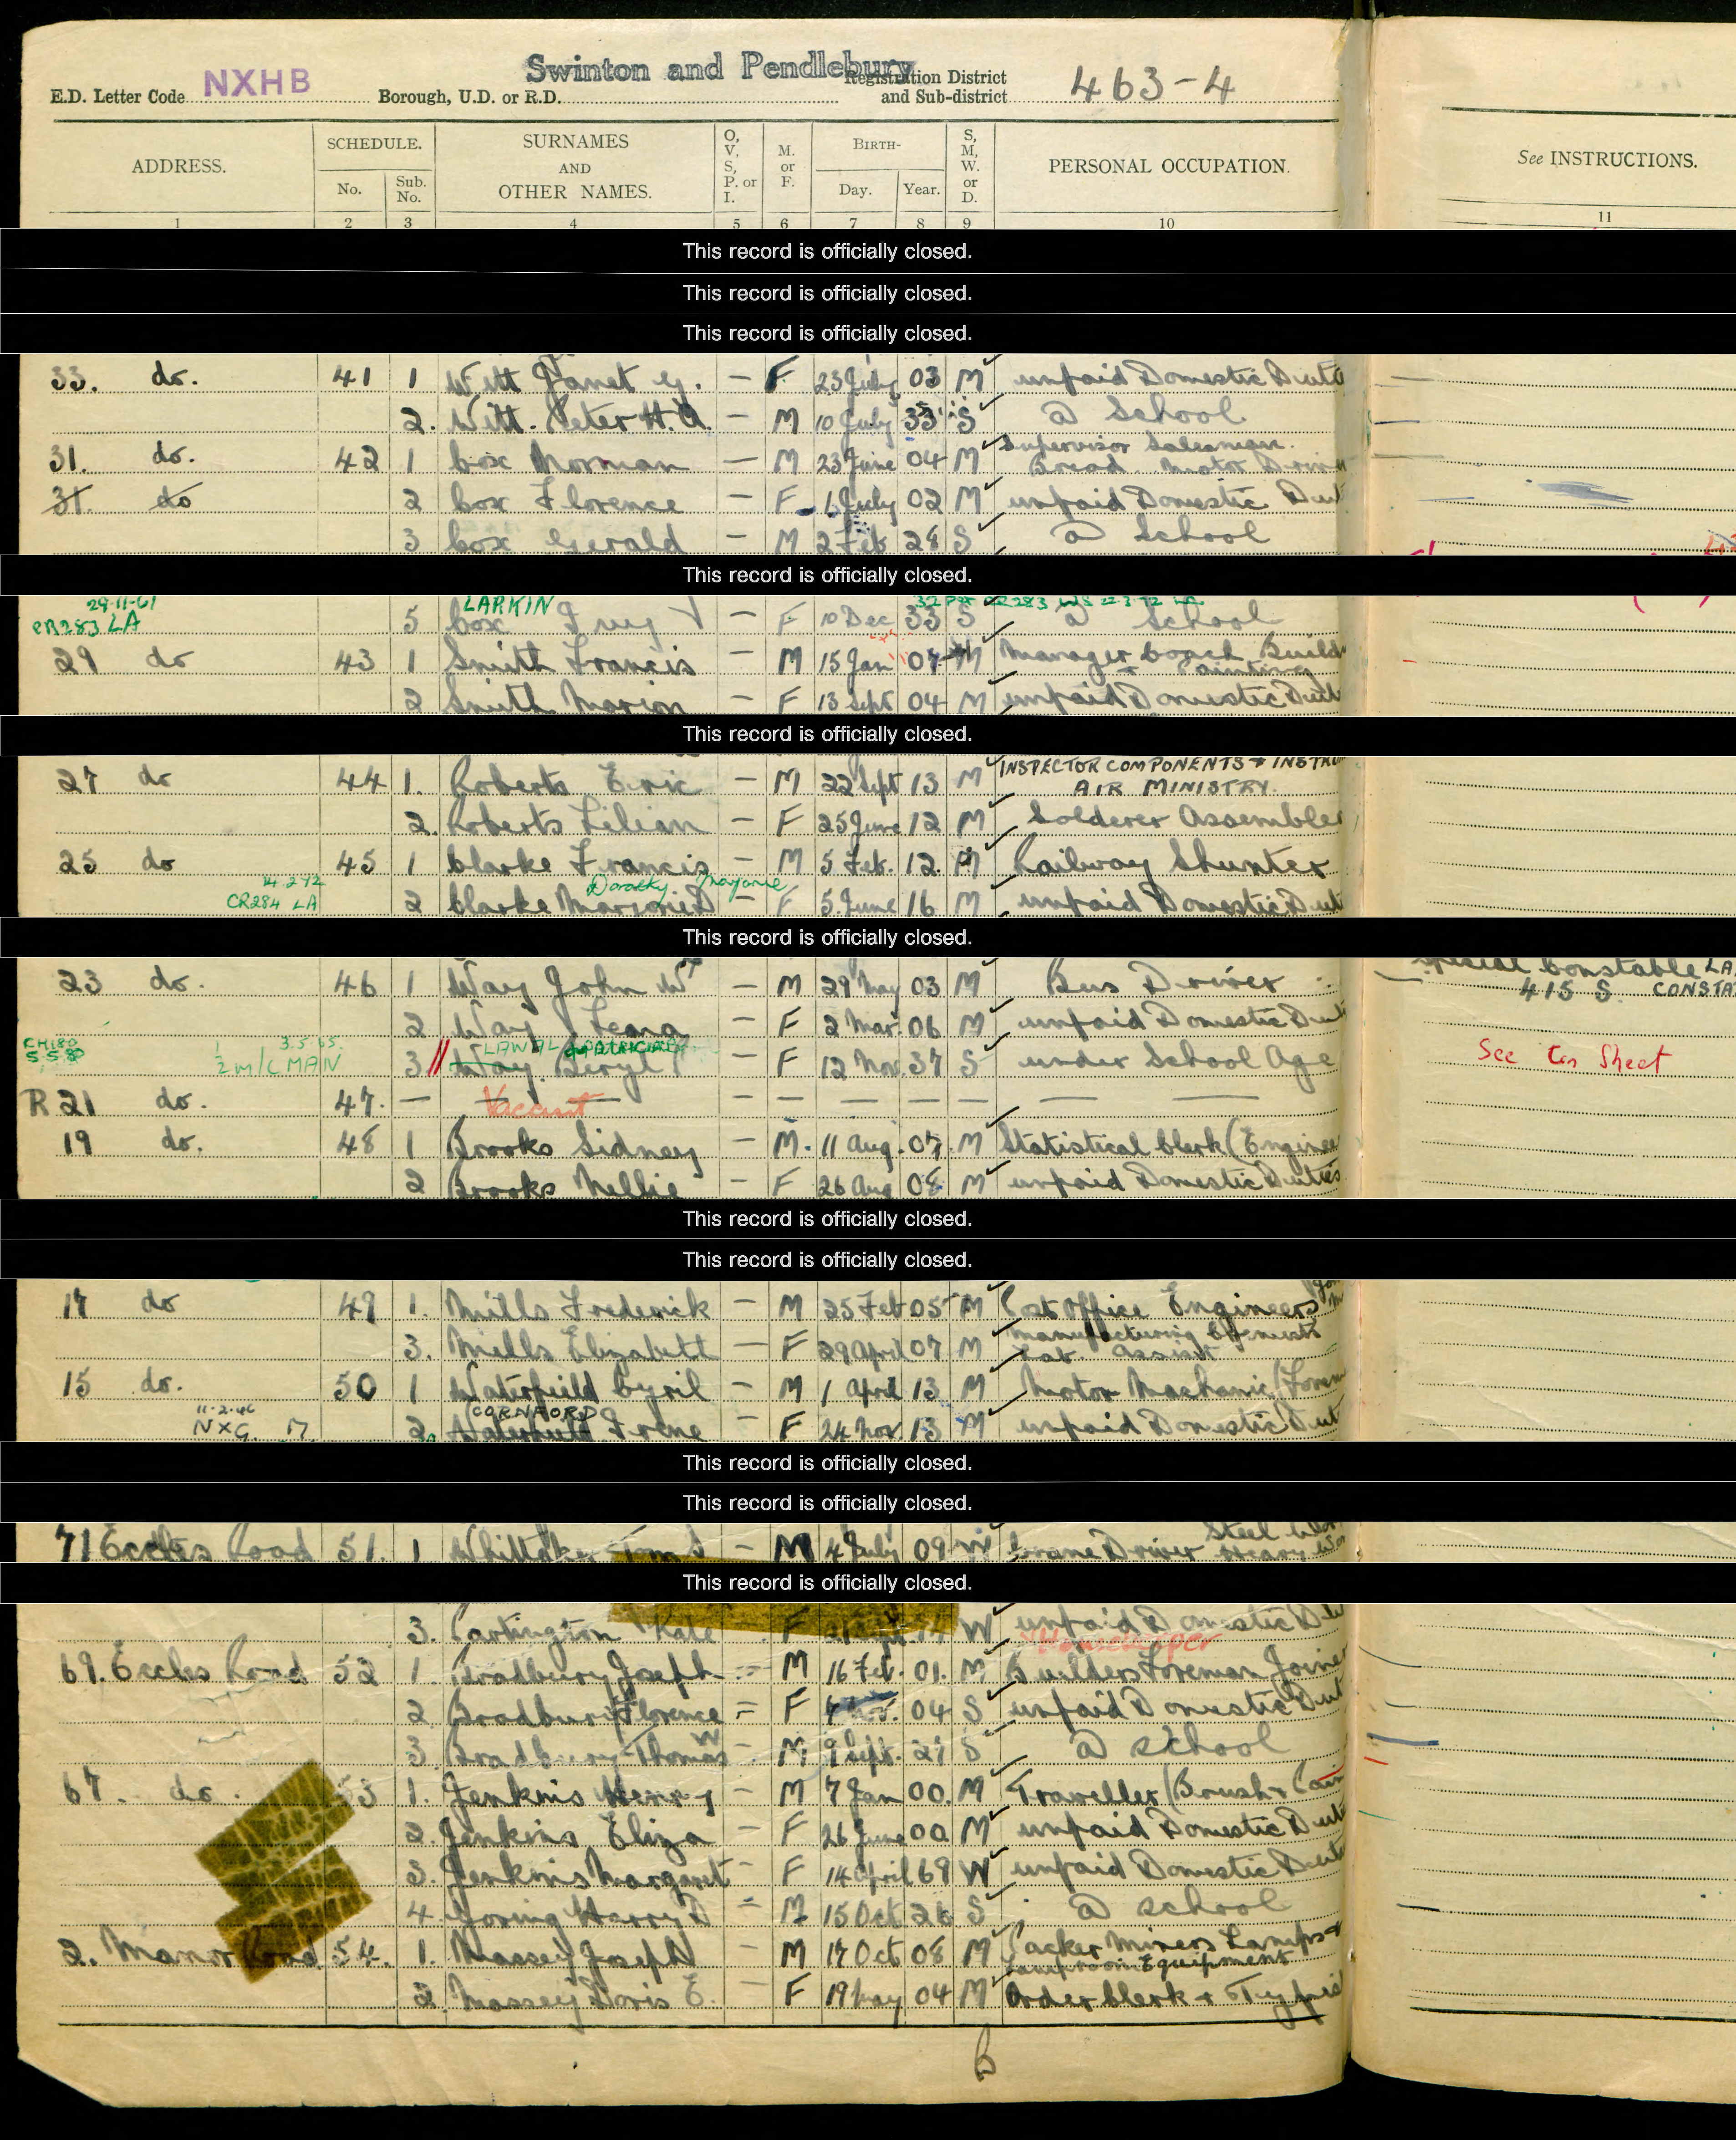 Swinton and Pendlebury
E.D. Letter Code NXHB Borough, U.D. or R.D. Registration District and Sub-district 463-4
ADDRESS. SCHEDULE. No. Sub. No. SURNAMES AND OTHER NAMES. O, V, S, P. or I. M. or F. BIRTH- Day. Year. S, M, W. or D. PERSONAL OCCUPATION. See INSTRUCTIONS.
1 2 3 4 5 6 7 8 9 10 11
This record is officially closed.
This record is officially closed.
This record is officially closed.
33. do. 41 1 Witt Janet G. — F 23 July 03 M unpaid Domestic Dutie
2. Witt. Peter H. A — M 10 July 33 S @ School
31. do. 42 1 Cox Norman — M 23 June 04 M Supervisor Salesman. Bread Motor Driver
31. do 2 Cox Florence — F 6 July 02 M unpaid Domestic Dut
3 Cox Gerald — M 2 Feb 28 S @ School
This record is officially closed.
29-11-61 LARKIN CR283 22-3-72 LA
CR283 LA 5 Cox — F 10 Dec 33 S @ School
29 do 43 1 Smith Francis — M 15 Jan 07 M Manager Coach Build + Painting
2 Smith Marion — F 13 Sept 04 M unpaid Domestic Dut
This record is officially closed.
27 do 44 1. Roberts Eric — M 22 Sept 13 M INSPECTOR COMPONENTS & INSTRU AIR MINISTRY.
2. Roberts Lilian — F 25 June 12 M Solderer Assembler
25 do 45 1 Clarke Francis — M 5 Feb. 12. M Railway Shunter
14.2.72 Dorothy Marjorie
CR284 LA 2 Clarke Marjorie D — F 5 June 16 M unpaid Domestic Dut
This record is officially closed.
23 do. 46 1 Way John W — M 29 May 03 M Bus Driver Special Constable LA 415 S. CONSTA
2 Way Leana — F 2 Mar. 06 M unpaid Domestic Dut
CH180 5.5.80 3.5.65. M/C MAN LAWAL PATRICIA
3 Way Beryl P — F 12 Nov. 37 S under School Age See Ton Sheet
R 21 do. 47. — Vacant — — — — — — —
19 do. 48 1 Brooks Sidney — M. 11 Aug. 07. M Statistical Clerk (Enginee
2 Brooks Nellie — F 26 Aug 08 M unpaid Domestic Duties
This record is officially closed.
This record is officially closed.
17 do 49 1. Mills Frederick — M 25 Feb 05 M Post Office Engineers
3. Mills Elizabeth — F 29 April 07 M Manufacturing Chemists Lab. Assist
15 do. 50 1 Waterfield Cyril — M 1 April 13 M Motor Mechanic (Forem
11-2-46 CORNFORD
NXG. M. 2. Waterfield Irene — F 24 Nov. 13 M unpaid Domestic Dut
This record is officially closed.
This record is officially closed.
71 Eccles Road 51. 1 Whittaker — M 4 July 09 Crane Driver Steel Heavy
This record is officially closed.
3. Partington Kate F W unpaid Domestic Housekeeper
69. Eccles Road 52 1. Bradbury Joseph — M 16 Feb. 01. M Builders Foreman Joiner
2 Bradbury Florence — F 04 S unpaid Domestic Dut
3. Bradbury Thomas W M. 9 Sept. 27 S @ School
67. do. 53 1. Jenkins Henry — M 7 Jan 00. M Traveller (Brush & Pain
2. Jenkins Eliza — F 26 June 00 M unpaid Domestic Dut
3. Jenkins Margaret — F 14 April 69 W unpaid Domestic Dut
4. Harry D — M 15 Oct 26 S @ School
2. Manor Road 54. 1. Massey Joseph — M 17 Oct 08 M Packer Miners Lamps & Lamproom Equipment
2. Massey Doris E. — F 19 May 04 M Order Clerk & Typist
B